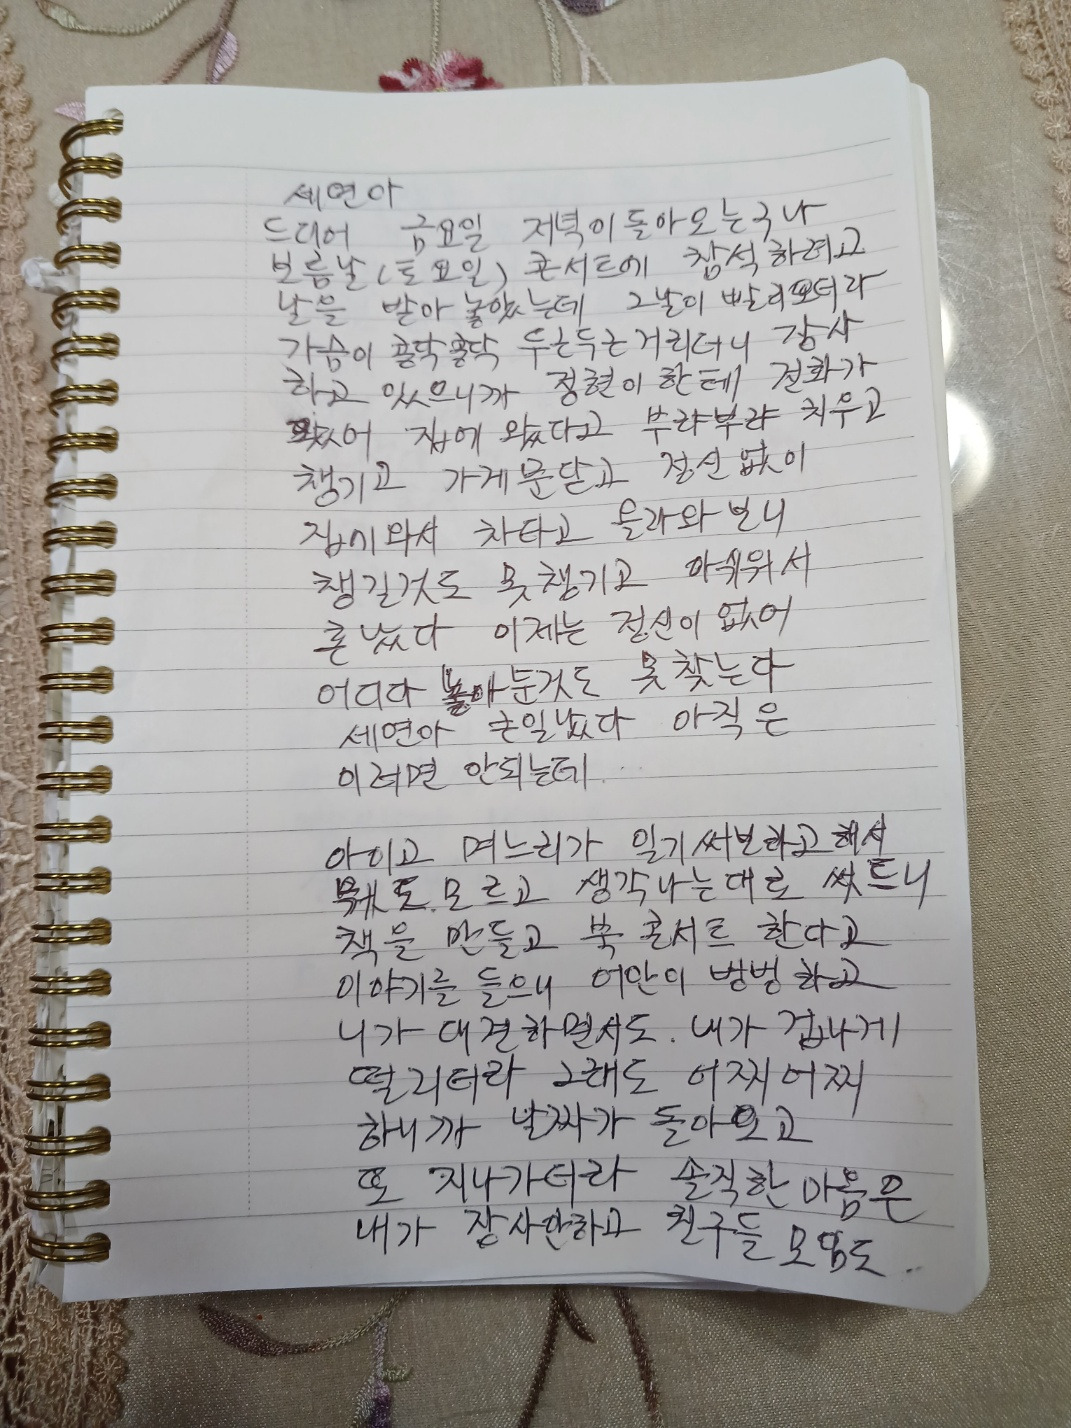 세연아
드디어 금요일 저녁이 돌아오는구나
보름날(토요일) 콘서트에 참석하려고
날을 받아 놓았는데 그날이 빨리오더라
가슴이 콩닥콩닥 두근두근거리더니 장사
하고 있으니까 정현이한테 전화가
왔어 집에 왔다고 부랴부랴 치우고
챙기고 가게문닫고 정신없이
집에와서 차타고 올라와보니
챙길것도 못챙기고 아쉬워서
혼났다 이제는 정신이 없어
어디다 놓아둔것도 못찾는다
세연아 큰일났다 아직은
이려면 안되는데...
아이고 며느리가 일기써보라고해서
뭐도.모르고 생각나는대로 썼드니
책을 만들고 북 콘서트 한다고
이야기를 들으니 어안이 벙벙하고
니가 대견하면서도. 내가 겁나게
떨리더라 그래도 어찌어찌
하니까 날짜가 돌아오고
또 지나가더라 솔직한 마음은
내가 장사안하고 친구들 모임도..